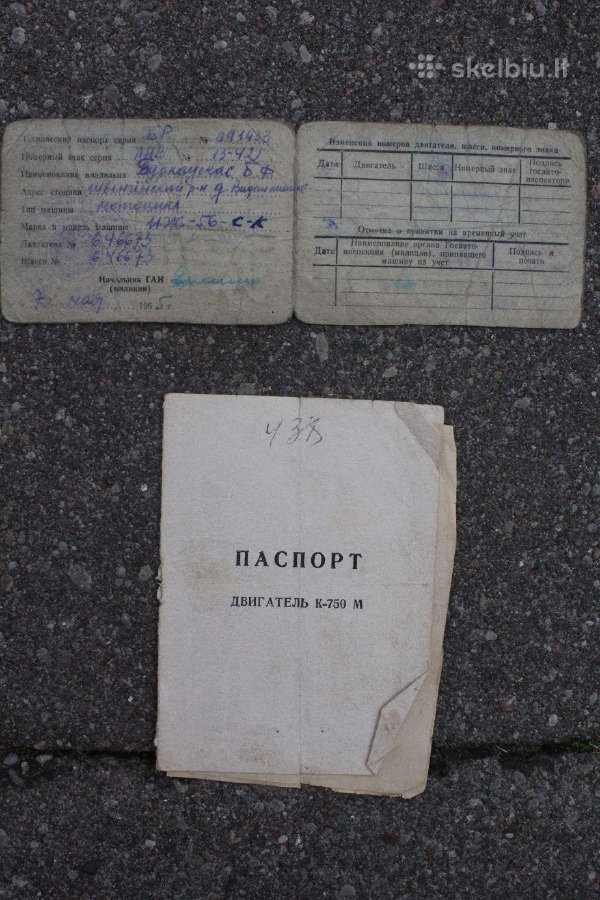 skelbiu.lt
Технический паспорт серия БР № 091433
Номерный знак серия № 15-432
Наименование владельца Б. Ф.
Адрес стоянки р-н д.
Тип машины мотоцикл
Марка и модель машины ИЖ-56-С-К
Двигатель № 646673
Шасси № 646673
Начальник ГАИ
(милиции)
7 1965 г.
Изменения номеров двигателя, шасси, номерного знака
Дата Двигатель Шасси Номерный знак Подпись госавто-инспектора
Отметка о принятии на временный учет
Дата Наименование органа Госавто-инспекции (милиции), принявшего машину на учет Подпись и печать
438
ПАСПОРТ
ДВИГАТЕЛЬ К-750 М